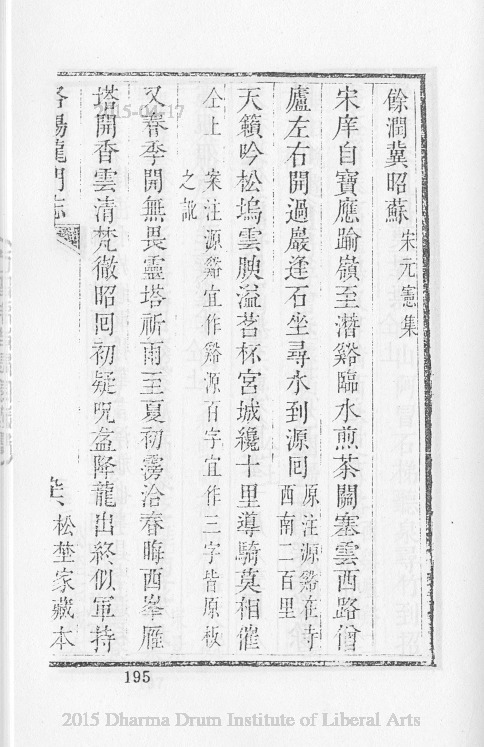 餘潤冀昭蘇 宋元憲集
宋庠自寶應踰嶺至潛谿臨水煎茶關塞雲西路僧
廬左右開過巖逢石坐尋水到源回 原注源谿在寺西南二百里
天籟吟松塢雲腴溢茗杯宮城纔十里導騎莫相催
仝上 案注源谿宜作谿源百字宜作三字皆原板
之訛
又春季開無畏靈塔祈雨至夏初霶洽春晦西峯雁
塔開香雲清梵徹昭回初疑咒盋降龍出終似軍持
洛陽龍門志
松埜家藏本
195
2015-04-17
2015 Dharma Drum Institute of Liberal Arts